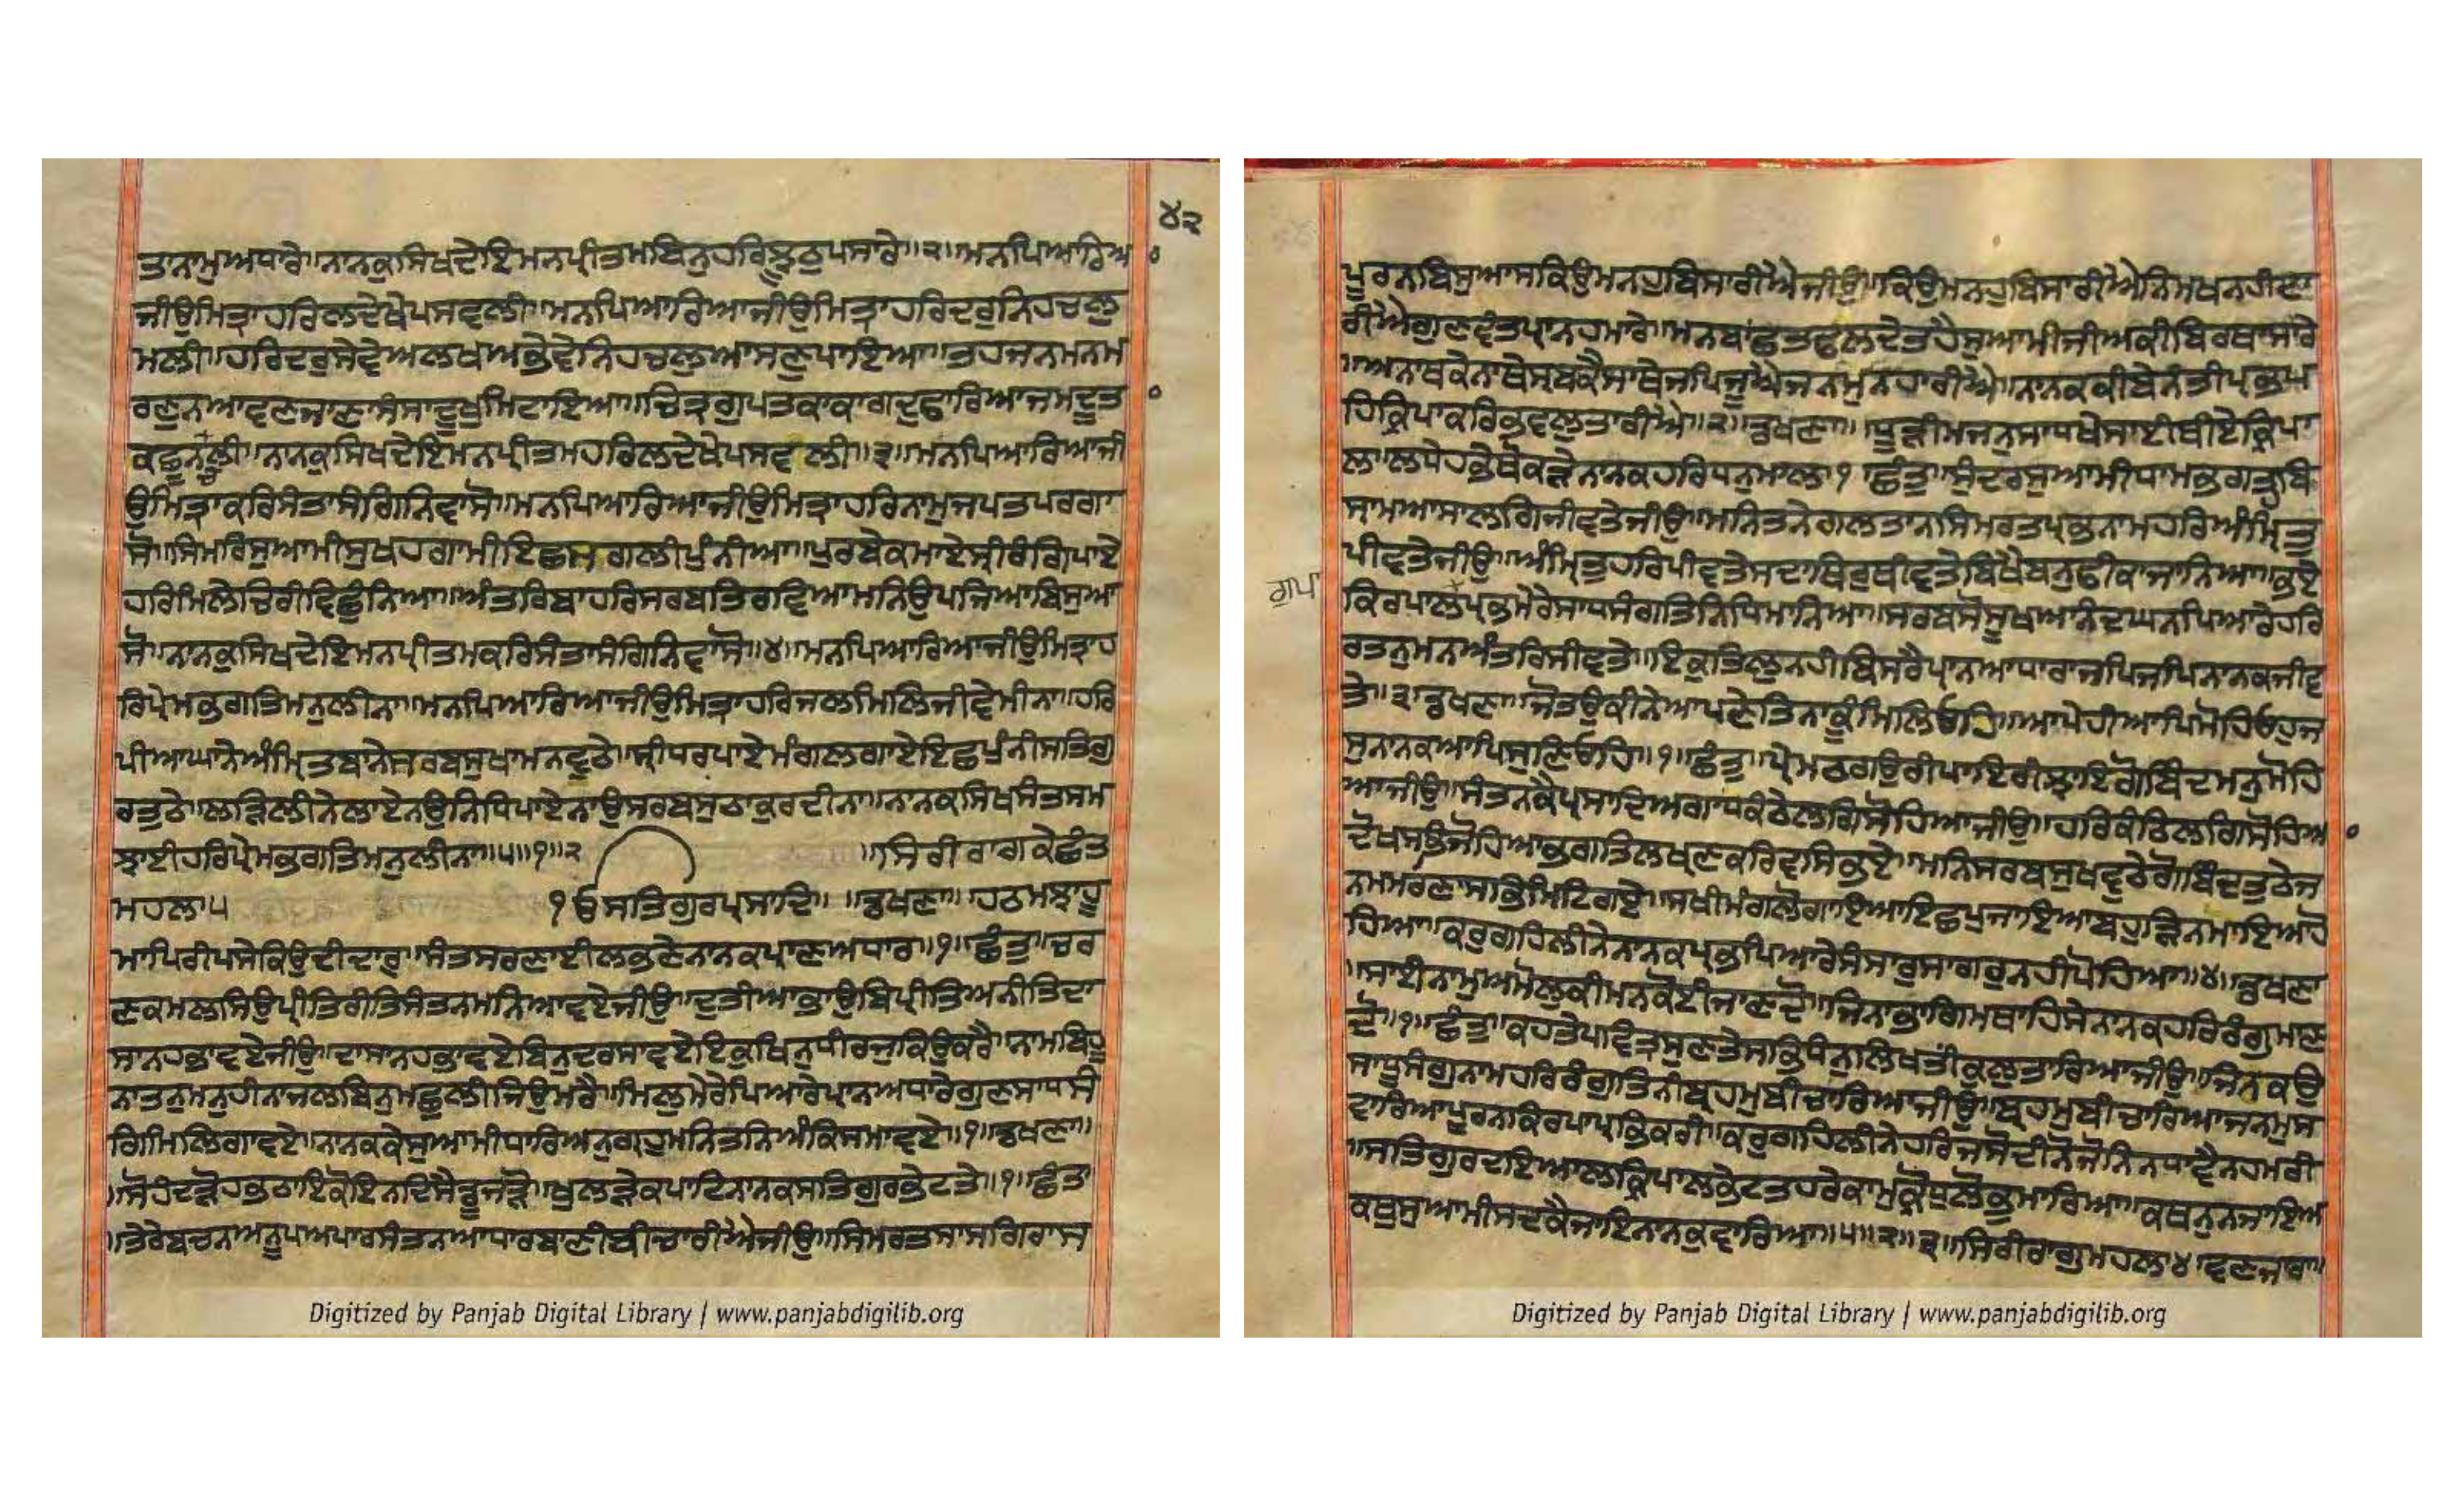 ੪੨
ਤਨਾਮੁਅਧਾਰੇ॥ਨਾਨਕੁਸਿਖਦੇਇਮਨਪ੍ਰੀਤਮਬਿਨੁਹਰਿਝੂਠੁਪਸਾਰੇ॥੨॥ਮਨਪਿਆਰਿਅ
ਜੀਉਮਿਤ੍ਰਾਹਰਿਲਦੇਖੇਪਸਵਲੀ॥ਮਨਪਿਆਰਿਆਜੀਉਮਿਤ੍ਰਾਹਰਿਦਰੁਨਿਹਚਲੁ
ਮਲੀ॥ਹਰਿਦਰੁਸੇਵੇਅਲਖਅਭੇਵੇਨਿਹਚਲੁਆਸਣੁਪਾਇਆ॥ਤਹਜਨਮਨਮ
ਰਣੁਨਆਵਣਜਾਣਾਸੰਸਾਦੂਖੁਮਿਟਾਇਆ॥ਚਿਤ੍ਰਗੁਪਤਕਾਕਾਗਦੁਫਾਰਿਆਜਮਦੂਤ
ਕਛੂਨਚਲੀ॥ਨਾਨਕੁਸਿਖਦੇਇਮਨਪ੍ਰੀਤਮਹਰਿਲਦੇਖੇਪਸਵਲੀ॥੩॥ਮਨਪਿਆਰਿਆਜੀ
ਉਮਿਤ੍ਰਾਕਰਿਸੰਤਾਸੰਗਿਨਿਵਾਸੋ॥ਮਨਪਿਆਰਿਆਜੀਉਮਿਤ੍ਰਾਹਰਿਨਾਮੁਜਪਤਪਰਗਾ
ਸੋ॥ਸਿਮਰਿਸੁਆਮੀਸੁਖਹਗਾਮੀਇਛਸਗਲੀਪੁੰਨੀਆ॥ਪੁਰਬੇਕਮਾਏਸ੍ਰੀਰੰਗਪਾਏ
ਹਰਿਮਿਲੇਚਿਰੀਵਿਛੁੰਨਿਆ॥ਅੰਤਰਿਬਾਹਰਿਸਰਬਤਿਰਵਿਆਮਨਿਉਪਜਿਆਬਿਸੁਆ
ਸੋ॥ਨਾਨਕੁਸਿਖਦੇਇਮਨਪ੍ਰੀਤਮਕਰਿਸੰਤਾਸੰਗਿਨਿਵਾਸੋ॥੪॥ਮਨਪਿਆਰਿਆਜੀਉਮਿਤ੍ਰਾਹ
ਰਿਪ੍ਰੇਮਭਗਤਿਮਨੁਲੀਨਾ॥ਮਨਪਿਆਰਿਆਜੀਉਮਿਤ੍ਰਾਹਰਿਜਲਮਿਲਿਜੀਵੇਮੀਨਾ॥ਹਰਿ
ਪੀਆਘਾਨੇਅੰਮ੍ਰਿਤਬਾਨੇਸਰਬਸੁਖਾਮਨਵੂਠੇ॥ਸ੍ਰੀਧਰਪਾਏਮੰਗਲਗਾਏਇਛਪੁੰਨੀਸਤਿਗੁ
ਰਤੁਠੇ॥ਲੜਿਲੀਨੇਲਾਏਨਉਨਿਧਿਪਾਏਨਾਉਸਰਬਸੁਠਾਕੁਰਦੀਨਾ॥ਨਾਨਕਸਿਖਸੰਤਸਮ
ਝਾਈਹਰਿਪ੍ਰੇਮਭਗਤਿਮਨੁਲੀਨਾ॥੫॥੧॥੨ ॥ਸਿਰੀਰਾਗਕੇਛੰਤ
ਮਹਲਾ੫ ੴਸਤਿਗੁਰਪ੍ਰਸਾਦਿ॥ ॥ਡਖਣਾ॥ ਹਠਮਝਾਹੂ
ਮਾਪਿਰੀਪਸੇਕਿਉਦੀਦਾਰੁ॥ਸੰਤਸਰਣਾਈਲਭਣੇਨਾਨਕਪ੍ਰਾਣਅਧਾਰ॥੧॥ਛੰਤੁ॥ਚਰ
ਣਕਮਲਸਿਉਪ੍ਰੀਤਿਰੀਤਿਸੰਤਨਮਨਿਆਵਏਜੀਉ॥ਦੁਤੀਆਭਾਉਬਿਪ੍ਰੀਤਿਅਨੀਤਿਦਾ
ਸਾਨਹਭਾਵਏਜੀਉ॥ਦਾਸਾਨਹਭਾਵਏਬਿਨੁਦਰਸਾਵਏਇਕੁਖਿਨੁਧੀਰਜੁਕਿਉਕਰੈ॥ਨਾਮਬਿਹੂ
ਨਾਤਨੁਮਨੁਹੀਨਾਜਲਬਿਨੁਮਛੁਲੀਜਿਉਮਰੈ॥ਮਿਲੁਮੇਰੇਪਿਆਰੇਪ੍ਰਾਨਅਧਾਰੇਗੁਣਸਾਧਸੰ
ਗਿਮਿਲਿਗਾਵਏ॥ਨਾਨਕਕੇਸੁਆਮੀਧਾਰਿਅਨੁਗ੍ਰਹੁਮਨਿਤਨਿਅੰਕਿਸਮਾਵਏ॥੧॥ਡਖਣਾ॥
॥ਸੋਹੰਦੜੋਹਭਠਾਇਕੋਇਨਦਿਸੈਡੂਜੜੋ॥ਖੁਲੑੜੇਕਪਾਟਨਾਨਕਸਤਿਗੁਰਭੇਟਤੇ॥੧॥ਛੰਤ
॥ਤੇਰੇਬਚਨਅਨੂਪਅਪਾਰਸੰਤਨਆਧਾਰਬਾਣੀਬੀਚਾਰੀਐਜੀਉ॥ਸਿਮਰਤਸਾਸਗਿਰਾਸ
ਪੂਰਨਬਿਸੁਆਸਕਿਉਮਨਹੁਬਿਸਾਰੀਐਜੀਉ॥ਕਿਉਮਨਹੁਬਿਸਾਰੀਐਨਿਮਖਨਹੀਟਾ
ਰੀਐਗੁਣਵੰਤਪ੍ਰਾਨਹਮਾਰੇ॥ਮਨਬਾਂਛਤਫਲਦੇਤਹੈਸੁਆਮੀਜੀਅਕੀਬਿਰਥਾਸਾਰੇ
॥ਅਨਾਥਕੇਨਾਥੇਸ੍ਰਬਕੈਸਾਥੇਜਪਿਜੂਐਜਨਮੁਨਹਾਰੀਐ॥ਨਾਨਕਕੀਬੇਨੰਤੀਪ੍ਰਭਪ
ਹਿਕ੍ਰਿਪਾਕਰਿਭਵਜਲੁਤਾਰੀਐ॥੨॥ਡਖਣਾ॥ ॥ਧੂੜੀਮਜਨੁਸਾਧਖੇਸਾਈਥੀਏਕ੍ਰਿਪਾ
ਲਾਲਧੇਹਭੇਥੋਕੜੇਨਾਨਕਹਰਿਧਨੁਮਾਲ॥੧ ਛੰਤੁ॥ਸੁੰਦਰਸੁਆਮੀਧਾਮਭਗਤਹਬਿ
ਸ੍ਰਾਮਆਸਾਲਗਿਜੀਵਤੇਜੀਉ॥ਮਨਿਤਨੇਗਲਤਾਨਸਿਮਰਤਪ੍ਰਭਨਾਮਹਰਿਅੰਮ੍ਰਿਤੁ
ਪੀਵਤੇਜੀਉ॥ਅੰਮ੍ਰਿਤੁਹਰਿਪੀਵਤੇਸਦਾਥਿਰੁਥੀਵਤੇਬਿਖੈਬਨੁਫੀਕਾਜਾਨਿਆ॥ਭਏ
ਗੁਪਾ
ਕਿਰਪਾਲਪ੍ਰਭਮੇਰੇਸਾਧਸੰਗਤਿਨਿਧਿਮਾਨਿਆ॥ਸਰਬਸੋਸੂਖਆਨੰਦਘਨਪਿਆਰੇਹਰਿ
ਰਤਨੁਮਨਅੰਤਰਿਸੀਵਤੇ॥ਇਕੁਤਿਲੁਨਹੀਬਿਸਰੈਪ੍ਰਾਨਆਧਾਰਾਜਪਿਜਪਿਨਾਨਕਜੀਵ
ਤੇ॥੩॥ਡਖਣਾ॥ਜੋਤਉਕੀਨੇਆਪਣੇਤਿਨਾਕੂੰਮਿਲਿਓਹਿ॥ਆਪੇਹੀਆਪਿਮੋਹਿਓਹੁਜ
ਸੁਨਾਨਕਆਪਿਸੁਣਿਓਹਿ॥੧॥ਛੰਤੁ॥ਪ੍ਰੇਮਠਗਉਰੀਪਾਇਰੀਝਾਇਗੋਬਿੰਦਮਨੁਮੋਹਿ
ਆਜੀਉ॥ਸੰਤਨਕੈਪ੍ਰਸਾਦਿਅਗਾਧਕੰਠੇਲਗਿਸੋਹਿਆਜੀਉ॥ਹਰਿਕੰਠਿਲਗਿਸੋਹਿਅ
ਦੋਖਸਭਿਜੋਹਿਆਭਗਤਿਲਖੵਣਕਰਿਵਸਿਭਏ॥ਮਨਿਸਰਬਸੁਖਵੂਠੇਗੋਬਿੰਦਤੁਠੇਜ
ਨਮਮਰਣਾਸਭਿਮਿਟਿਗਏ॥ਸਖੀਮੰਗਲੋਗਾਇਆਇਛਪੁਜਾਇਆਬਹੁੜਿਨਮਾਇਆਹੋ
ਹਿਆ॥ਕਰੁਗਹਿਲੀਨੇਨਾਨਕਪ੍ਰਭਪਿਆਰੇਸੰਸਾਰੁਸਾਗਰੁਨਹੀਪੋਹਿਆ॥੪॥ਡਖਣਾ
॥ਸਾਈਨਾਮੁਅਮੋਲੁਕੀਮਨਕੋਈਜਾਣਦੋ॥ਜਿਨਾਭਾਗਮਥਾਹਿਸੇਨਾਨਕਹਰਿਰੰਗੁਮਾਣ
ਦੋ॥੧॥ਛੰਤੁ॥ਕਹਤੇਪਵਿਤ੍ਰਸੁਣਤੇਸਭਿਧੰਨੁਲਿਖਤੀਕੁਲੁਤਾਰਿਆਜੀਉ॥ਜਿਨਕਉ
ਸਾਧੂਸੰਗੁਨਾਮਹਰਿਰੰਗੁਤਿਨੀਬ੍ਰਹਮੁਬੀਚਾਰਿਆਜੀਉ॥ਬ੍ਰਹਮੁਬੀਚਾਰਿਆਜਨਮੁਸ
ਵਾਰਿਆਪੂਰਨਕਿਰਪਾਪ੍ਰਭਿਕਰੀ॥ਕਰੁਗਹਿਲੀਨੇਹਰਿਜਸੋਦੀਨੇਜੋਨਿਨਧਾਵੈਨਹਮਰੀ
॥ਸਤਿਗੁਰਦਇਆਲਕ੍ਰਿਪਾਲਭੇਟਤਹਰੇਕਾਮੁਕ੍ਰੋਧੁਲੋਭੁਮਾਰਿਆ॥ਕਥਨੁਨਜਾਇਅ
ਕਥੁਸੁਆਮੀਸਦਕੈਜਾਇਨਾਨਕੁਵਾਰਿਆ॥੫॥੨॥੩॥ਸਿਰੀਰਾਗੁਮਹਲਾ੪॥ਵਣਜਾਰਾ॥
Digitized by Panjab Digital Library | www.panjabdigilib.org
Digitized by Panjab Digital Library | www.panjabdigilib.org